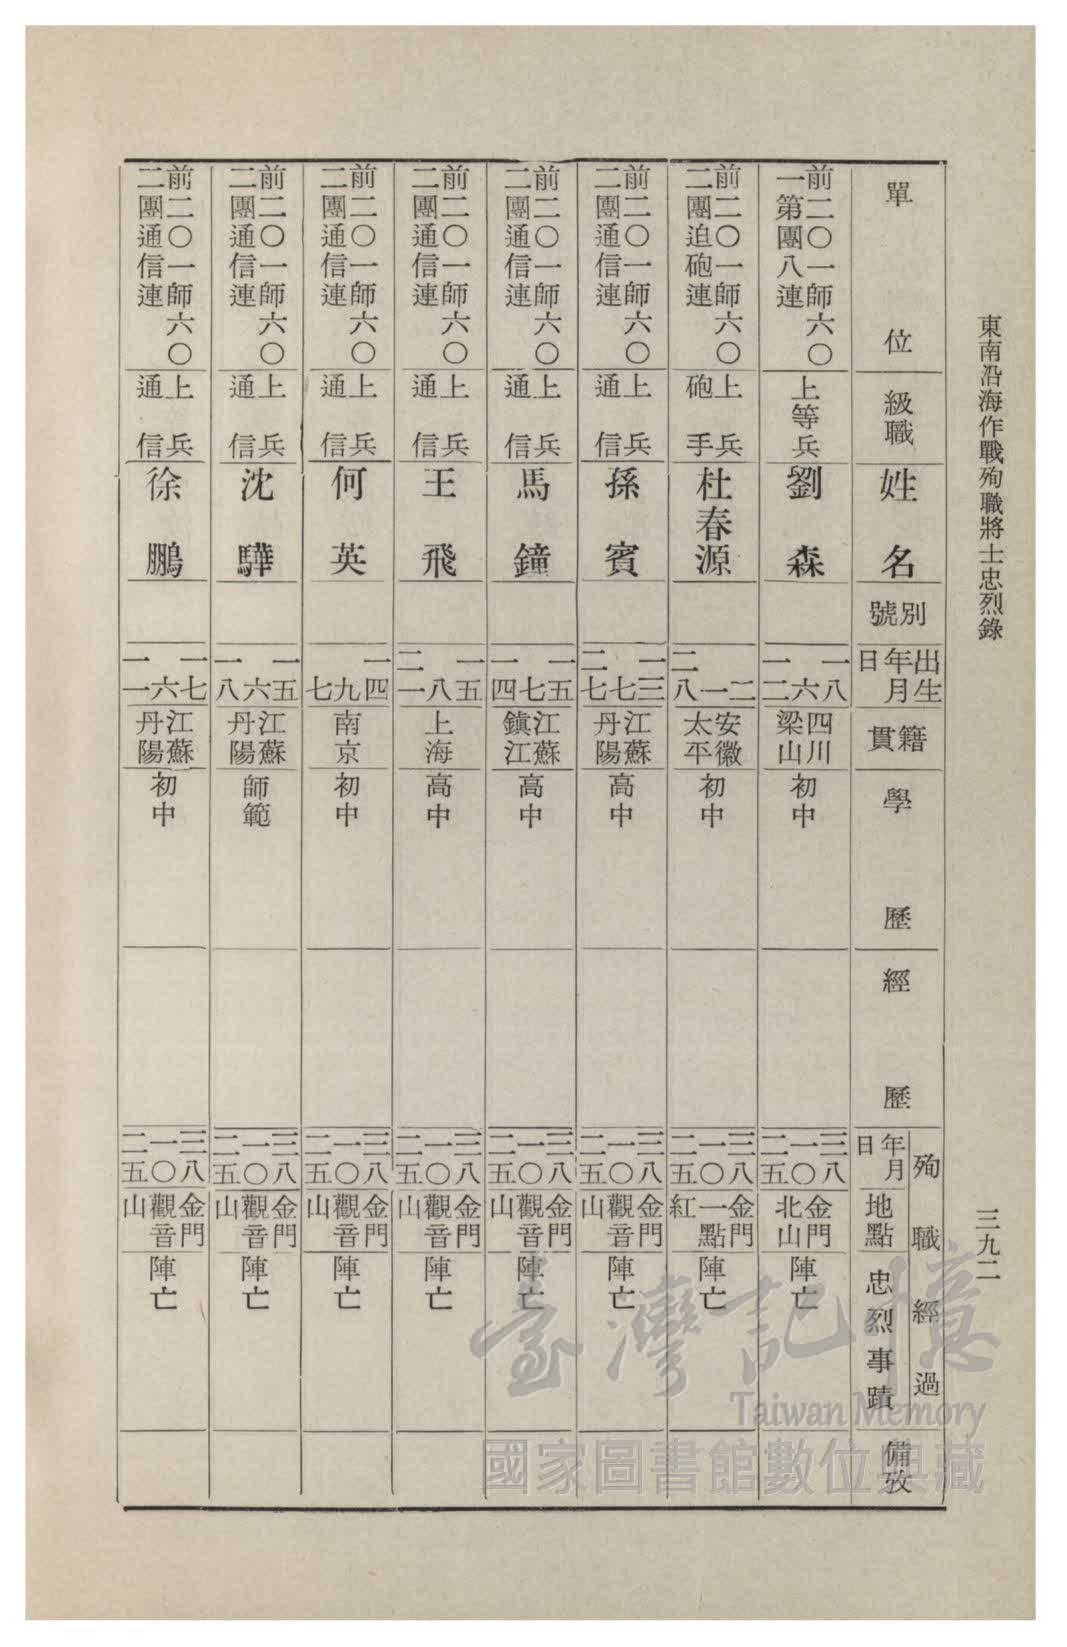 東南沿海作戰殉職將士忠烈錄
三九二
單位
級職
姓名
別號
出生年月日
籍貫
學歷
經歷
殉職經過
年月日
地點
忠烈事蹟
備攷
前二〇一師六〇
一第團八連
上等兵
劉森
一八
六
一二
四川
梁山
初中
三八
一〇
二五
金門
北山
陣亡
前二〇一師六〇
二團迫砲連
上兵
砲手
杜春源
二
一
二八
安徽
太平
初中
三八
一〇
二五
金門
一點
紅
陣亡
前二〇一師六〇
二團通信連
上兵
通信
孫賓
一三
七
二七
江蘇
丹陽
高中
三八
一〇
二五
金門
觀音
山
陣亡
前二〇一師六〇
二團通信連
上兵
通信
馬鐘
一五
七
一四
江蘇
鎮江
高中
三八
一〇
二五
金門
觀音
山
陣亡
前二〇一師六〇
二團通信連
上兵
通信
王飛
一五
八
二一
上海
高中
三八
一〇
二五
金門
觀音
山
陣亡
前二〇一師六〇
二團通信連
上兵
通信
何英
一四
九
七
南京
初中
三八
一〇
二五
金門
觀音
山
陣亡
前二〇一師六〇
二團通信連
上兵
通信
沈驊
一五
六
一八
江蘇
丹陽
師範
三八
一〇
二五
金門
觀音
山
陣亡
前二〇一師六〇
二團通信連
上兵
通信
徐鵬
一七
六
一一
江蘇
丹陽
初中
三八
一〇
二五
金門
觀音
山
陣亡
臺灣記憶
Taiwan Memory
國家圖書館數位典藏